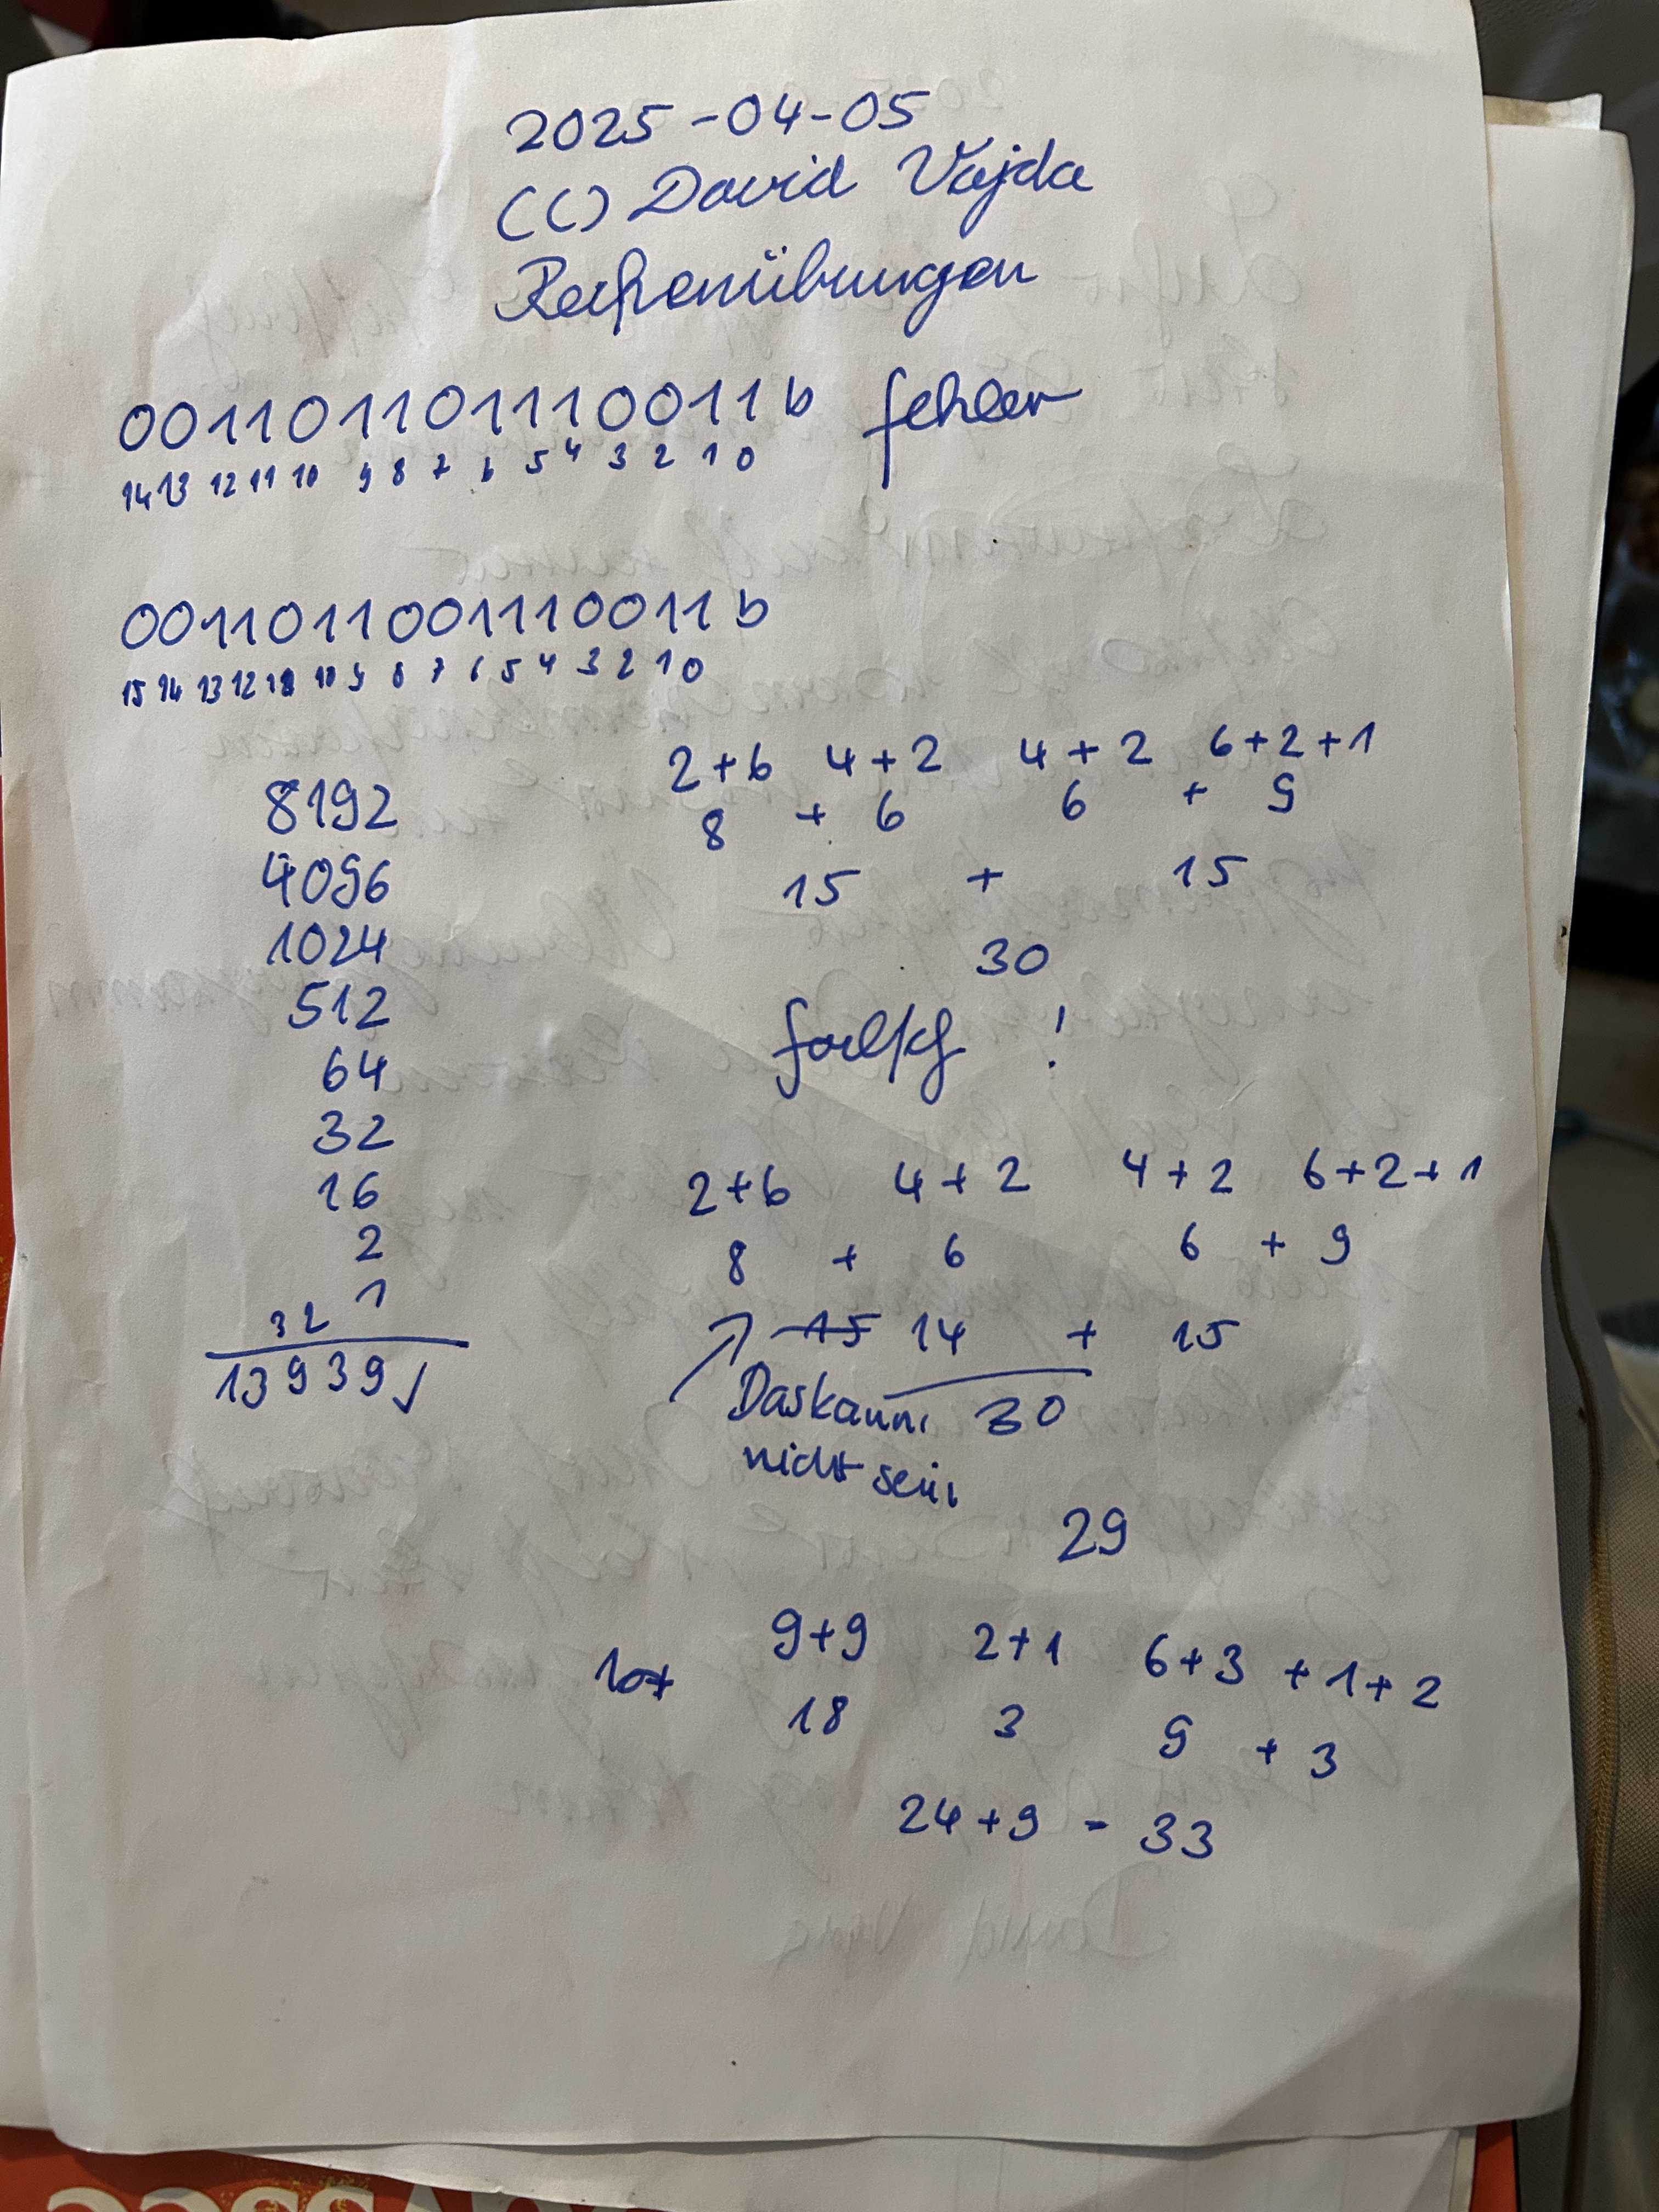 2025-04-05
(C) David Vajda
Rechenübungen
001101101110011b fehler
14 13 12 11 10 9 8 7 6 5 4 3 2 1 0
0011011001110011b
15 14 13 12 11 10 9 8 7 6 5 4 3 2 1 0
8192
4096
1024
512
64
32
16
2
1
3 2
13939✓
2+6 4+2 4+2 6+2+1
8 + 6 6 + 9
15 + 15
30
falsch !
2+6 4+2 4+2 6+2+1
8 + 6 6 + 9
15 14 + 15
Das kann 30
nicht sein
29
9+9 2+1 6+3 +1+2
18 3 9 + 3
24+9 = 33